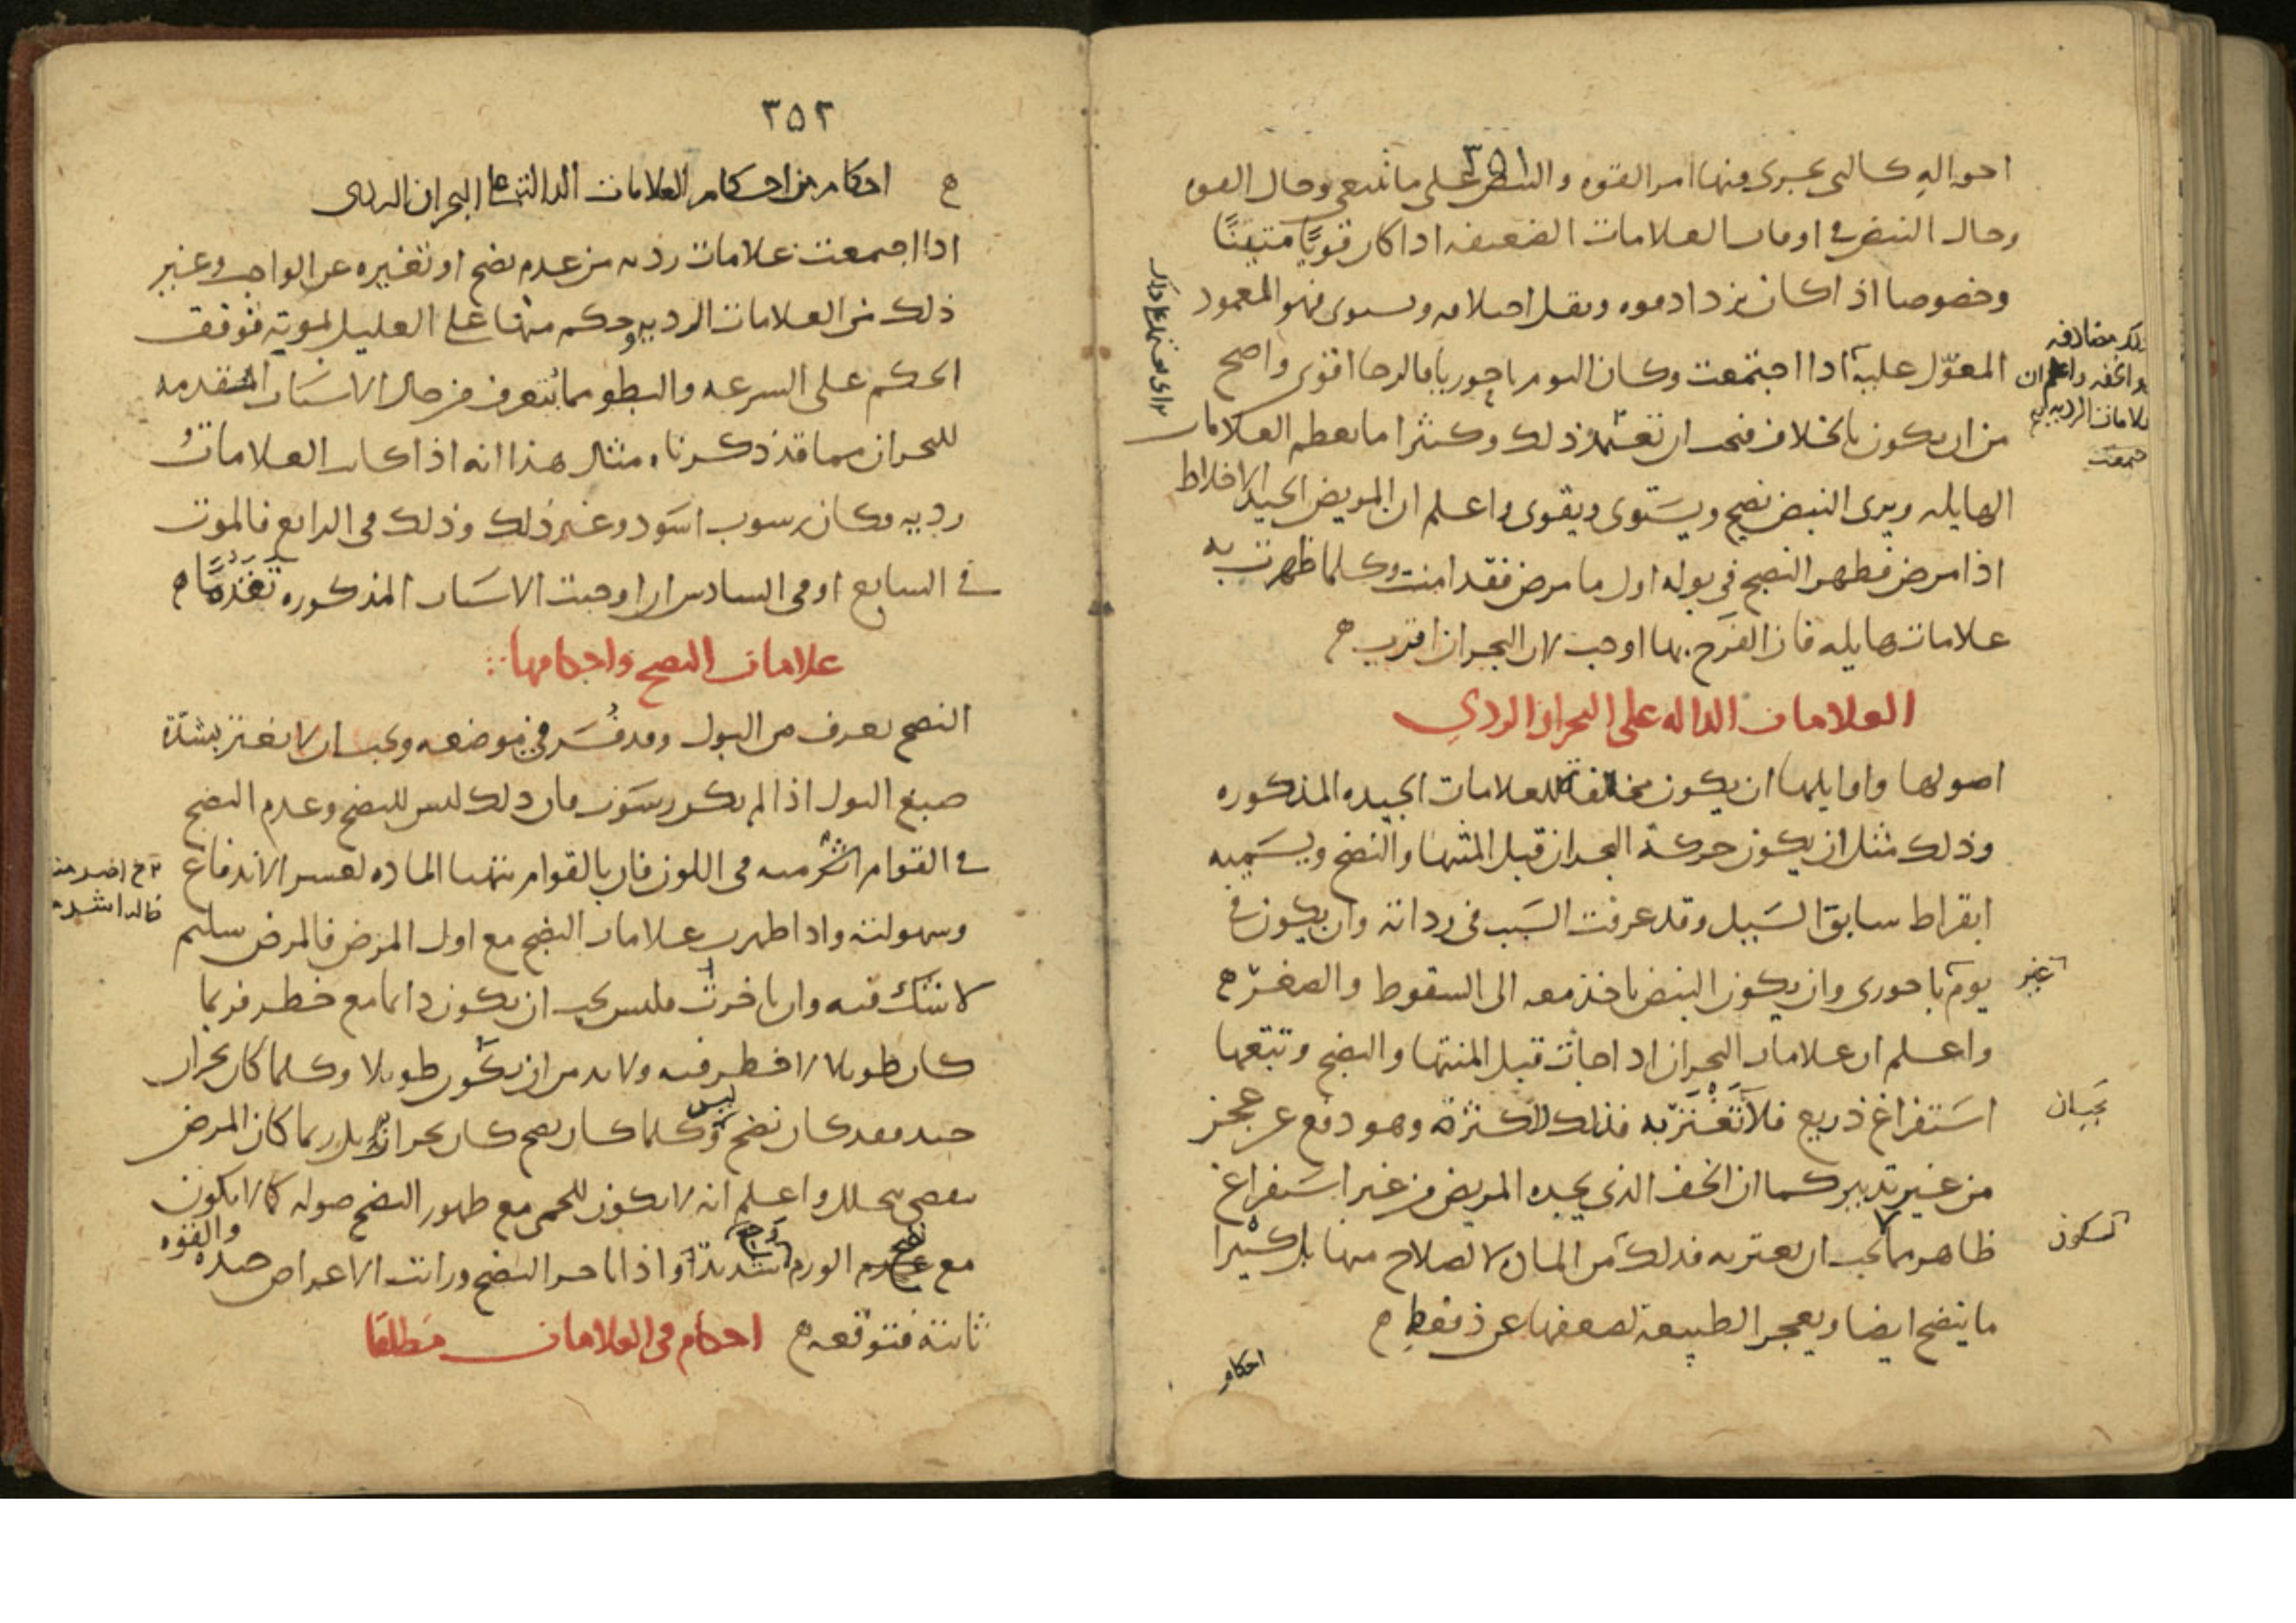 ٣٥١
احواله كالتى يجرى فيها امر القوه والنبض على ما ينبغى وحال القوه
وحال النبض فى اوقات العلامات الضعيفه اذا كان قويًا متينًا
وخصوصا اذا كان يزداد قوه ويقل اختلافه ويستوى فهو المعمود
المعوّل عليه اذا اجتمعت وكان اليوم باحوريا فالرجا اقوى واصح
من ان يكون بالخلاف فيجب ان تعتمد ذلك وكثيرا ما تعظم العلامات
الهايله ويرى النبض نضيج ويستوى ويقوى واعلم ان المريض الجيد الاخلاط
اذا مرض فظهر النضج فى بوله اول ما مرض فقد امنت وكلما ظهرت به
علامات هايله فان الفرح بها اوجب لان البحران اقرب ه
العلامات الداله على البحران الردي
اصولها واوايلها ان يكون مخالفة للعلامات الجيده المذكوره
وذلك مثل ان يكون حركة البحران قبل المنتها والنضج ويسميه
ابقراط سابق السبيل وقد عرفت السبب فى رداته وان يكون فى
يوم باحورى وان يكون النبض ياخذ معه الى السقوط والصغر ه
غير
واعلم ان علامات البحران اذا جاءت قبل المنتها والنضج وتبعها
استفراغ ذريع فلا تغترّ به فذلك للكثرة وهو دفع عن عجز
من غير تدبير كما ان الخف الذي يجده المريض من غير استفراغ
ظاهر مما لا يجب ان يغتر به فذلك من المادة لا لصلاح منها بل كثيرا
لسكون
ما ينضج ايضا ويعجز الطبيعة لضعفها عن دفعه ه
احكام
٣٥٢
ه احكام من احكام العلامات الدالة على البحران الردى
اذا اجتمعت علامات رديه من عدم نضج او تغيره عن الواجب وغير
ذلك من العلامات الرديه وحكم منها على العليل بموته فوقف
الحكم على السرعه والبطو مما يتعرف من حال الاسباب المتقدمه
للبحران مما قد ذكرناه مثال هذا انه اذا كانت العلامات
رديه وكان رسوب اسود وغير ذلك وذلك فى الرابع فالموت
فى السابع او فى السادس ان اوجبت الاسباب المذكوره تقدمًا ه
علامات النضج واحكامها
النضج يعرف من البول وقد فسر فى موضعه ويجب ان لا يغتر بشدّة
صبغ البول اذا لم يكن رسوب فان ذلك ليس للنضج وعدم النضج
فى القوام اكثر منه فى اللون فان بالقوام تتهيا الماده لعسر الاندفاع
وسهولته واذا ظهرت علامات النضج مع اول المرض فالمرض سليم
لا شك فيه وان تاخرت فليس يجب ان يكون دائما مع خطر فربما
كان طويلا لا خطر فيه ولا بد من ان يكون طويلا وكلما كان بحران
جيد فقد كان نضج وليس كلما كان نضج كان بحران بل ربما كان المرض
ينقضى بتحلل واعلم انه لا يكون للحمى مع ظهور النضج صوله كما لا يكون
مع نضج الورم واذا تاخر النضج ورايت الاعراض جيده والقوه
ثابتة فتوقعه ه احكام فى العلامات مطلقا